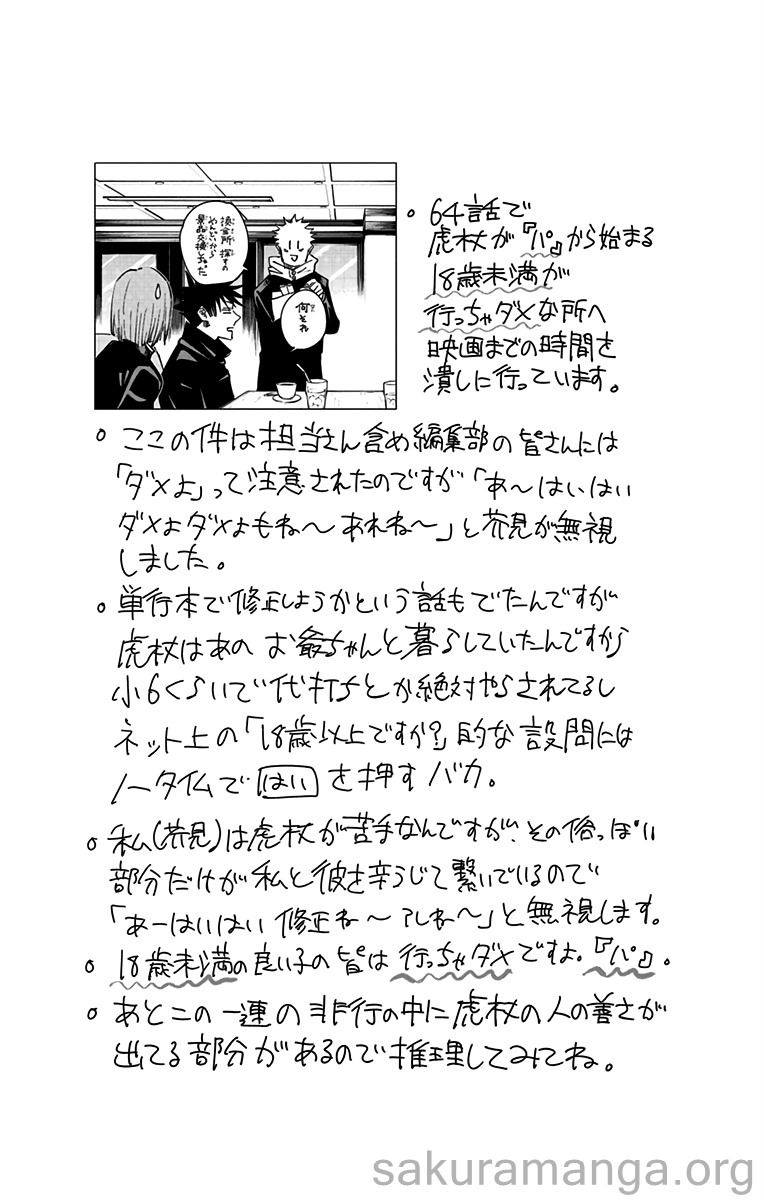 換金所探すの
めんどいから
景品交換しちゃった
何それ
。64話で
虎杖が『パ』から始まる
18歳未満が
行っちゃダメな所へ
映画までの時間を
潰しに行っています。
。ここの件は担当さん含め編集部の皆さんには
「ダメよ」って注意されたのですが「あ〜はいはい
ダメよダメよもね〜あれね〜」と芥見が無視
しました。
。単行本で修正しようかという話もでたんですが
虎杖はあのお爺ちゃんと暮らしていたんですから
小6くらいで代打ちとか絶対やらされてるし
ネット上の「18歳以上ですか?」的な設問には
ノータイムではいを押すバカ。
。私(芥見)は虎杖が苦手なんですが、その俗っぽい
部分だけが私と彼を辛うじて繋いでいるので
「あーはいはい修正ね〜アレね〜」と無視します。
。18歳未満の良い子の皆は行っちゃダメですよ。『パ』。
。あとこの一連の非行の中に虎杖の人の善さが
出てる部分があるので推理してみてね。
sakuramanga.org